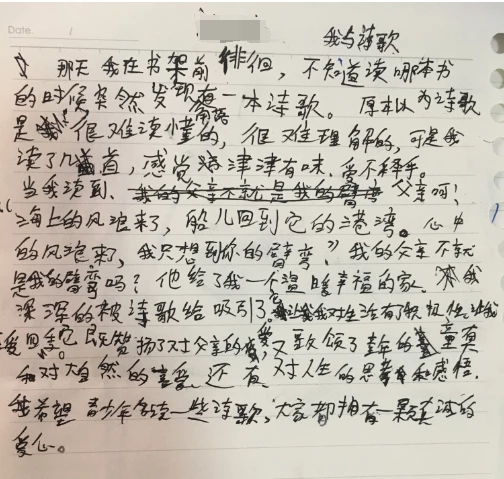 Date. /
我与诗歌
那天我在书架前徘徊，不知道读哪本书
的时候突然发现有一本诗歌。原本以为诗歌
是很难读懂的，很难理解的，可是我
读了几首，感觉津津有味，爱不释手。
当我读到 父亲呵！
海上的风浪来了，船儿回到它的港湾。心中
的风浪来了，我只想到你的臂弯”我的父亲不就
是我的臂弯吗？他给了我一个温暖幸福的家。我
深深的被诗歌给吸引了
它既赞扬了对父亲的爱，又歌颂了童真
和对大自然的喜爱，还有对人生的思考和感悟。
我希望青少年多读一些诗歌，大家都拥有一颗真诚的
爱心。